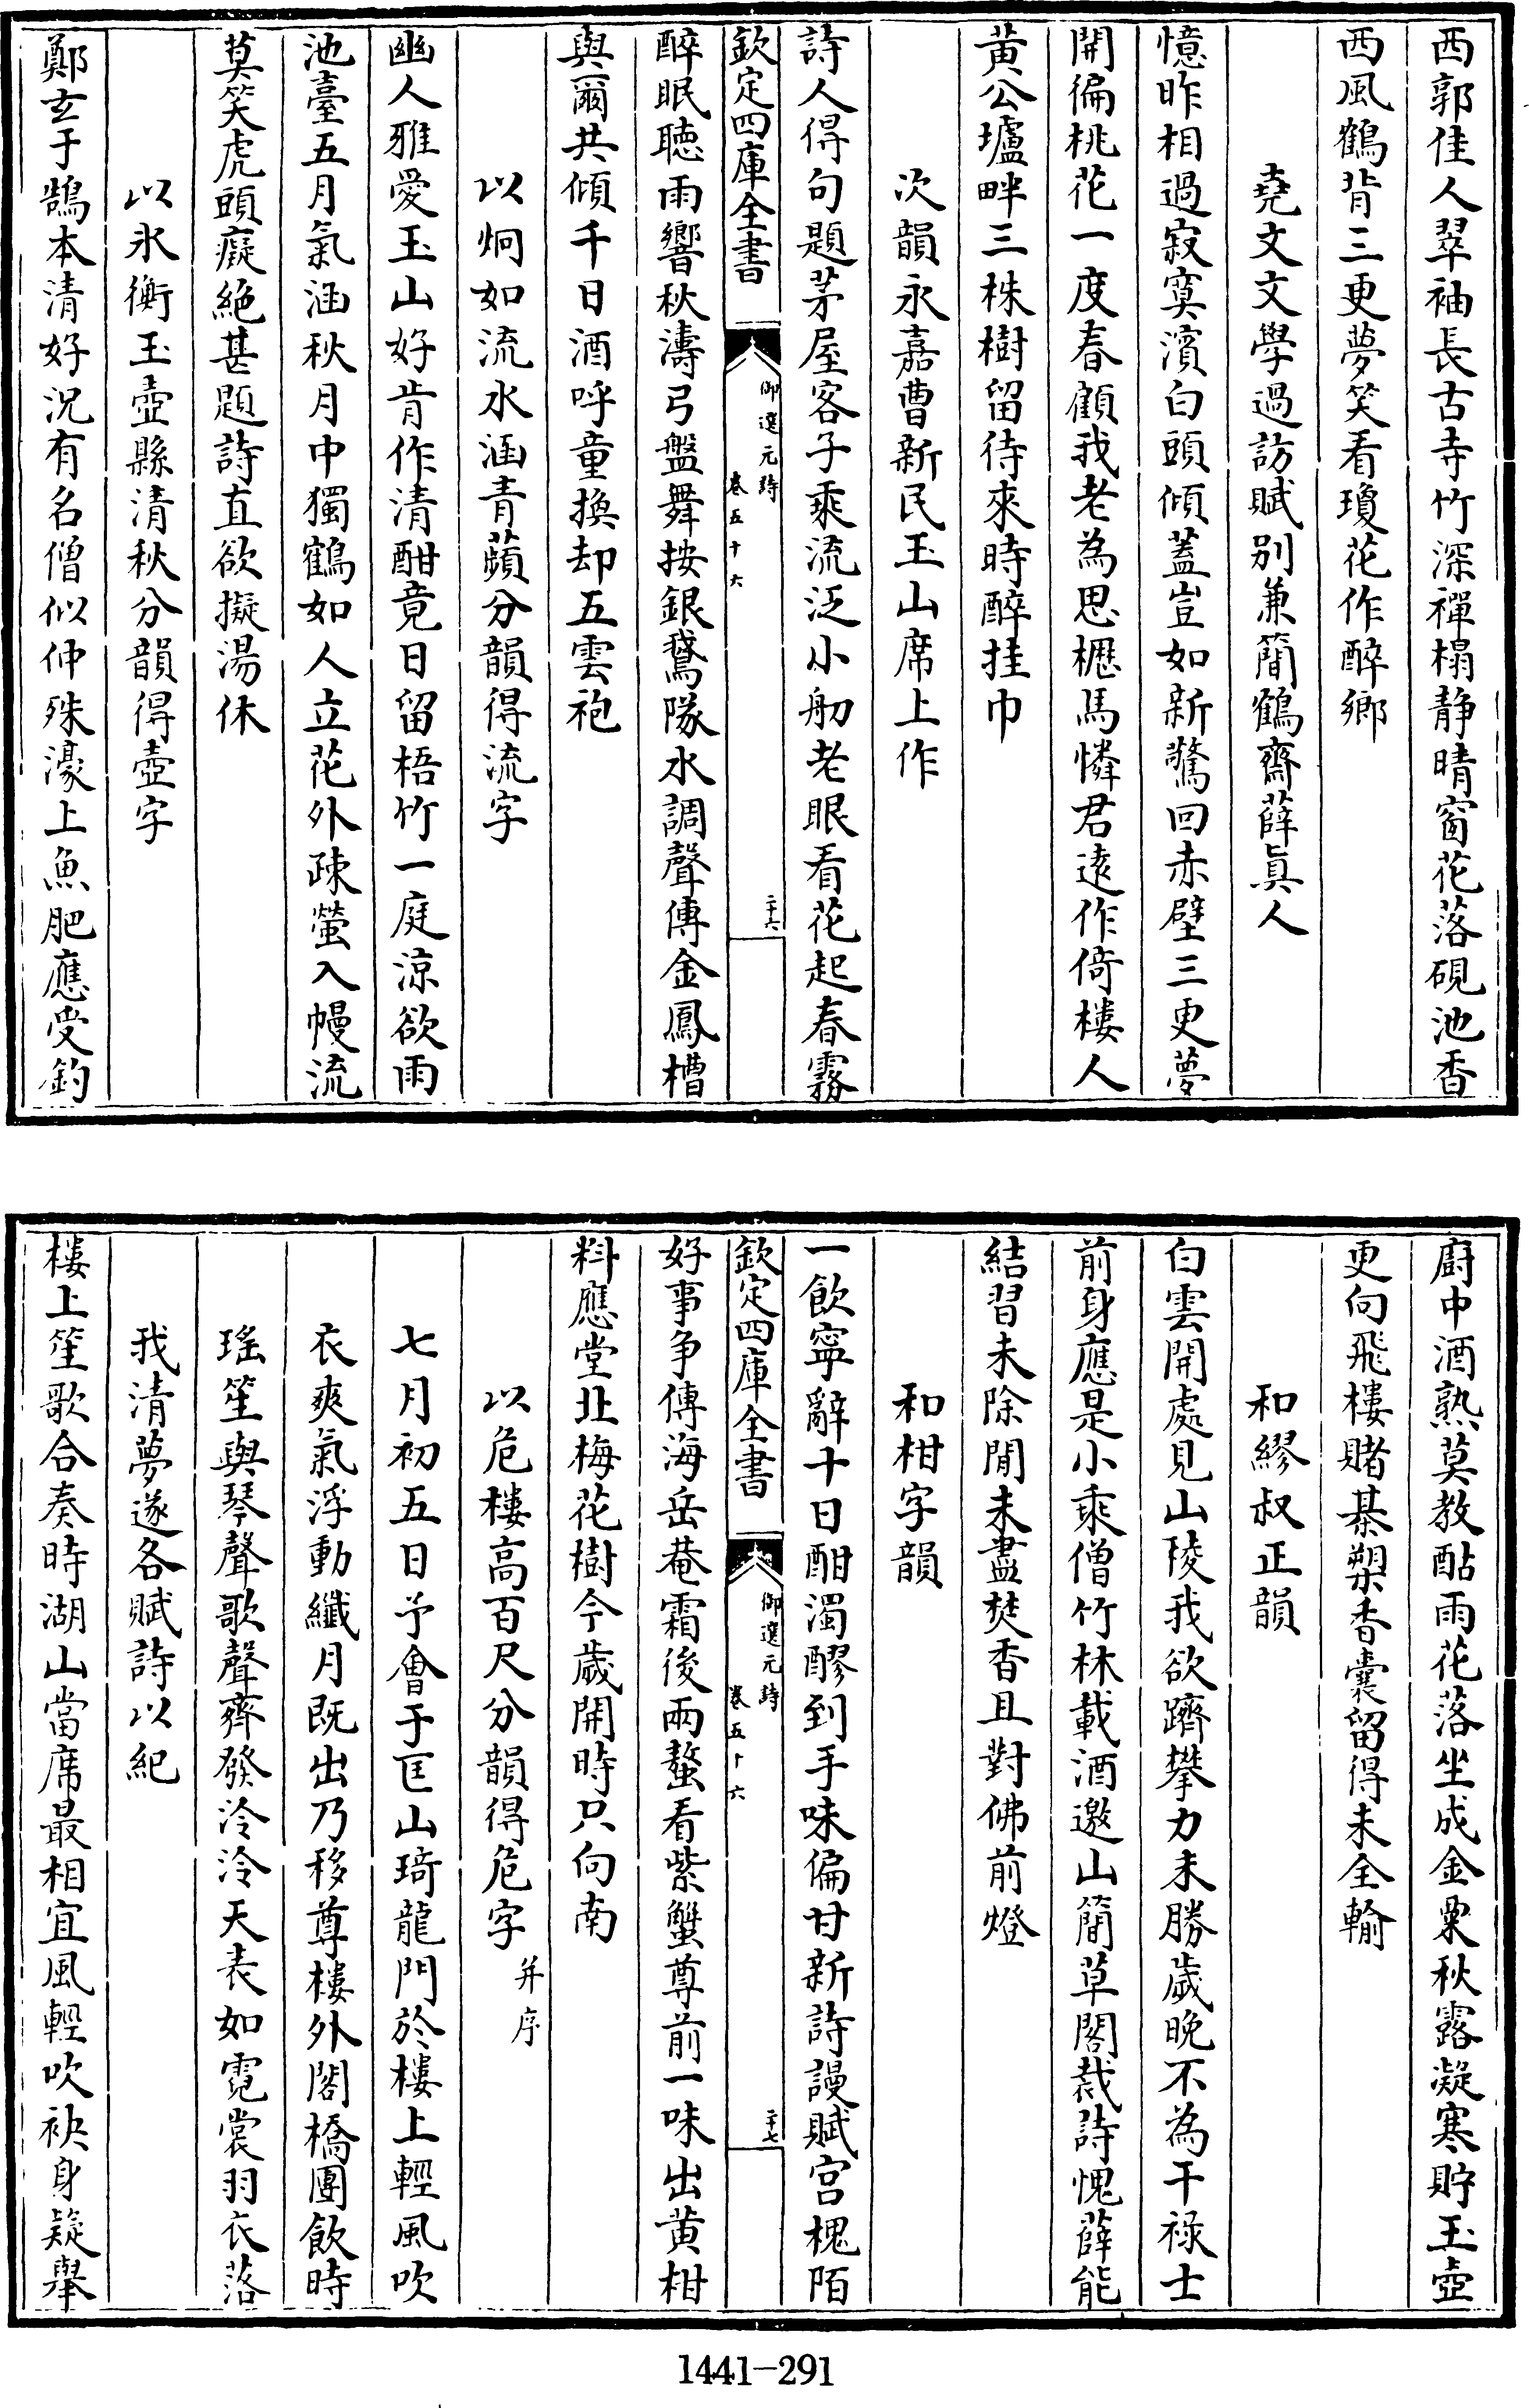 西郭佳人翠袖長古寺竹深禪榻静晴窗花落硯池香
西風鶴背三更夢笑看瓊花作醉鄉
堯文文學過訪賦别兼簡鶴齋薛眞人
憶昨相過寂寞濱白頭傾蓋豈如新驚回赤壁三更夢
開徧桃花一度春顧我老為思櫪馬憐君遠作倚樓人
黄公壚畔三株樹留待來時醉挂巾
次韻永嘉曹新民玉山席上作
詩人得句題茅屋客子乘流泛小舠老眼看花起春霧
欽定四庫全書
御選元詩
卷五十六
二十六
醉眠聽雨響秋濤弓盤舞按銀鵞隊水調聲傳金鳳槽
與爾共傾千日酒呼童換却五雲袍
以炯如流水涵青蘋分韻得流字
幽人雅愛玉山好肯作清酣竟日留梧竹一庭涼欲雨
池臺五月氣涵秋月中獨鶴如人立花外疎螢入幔流
莫笑虎頭癡絶甚題詩直欲擬湯休
以氷衡玉壺縣清秋分韻得壺字
鄭玄于鵠本清好況有名僧似仲殊濠上魚肥應受釣
廚中酒熟莫教酤雨花落坐成金粟秋露凝寒貯玉壺
更向飛樓賭棊槊香囊留得未全輸
和繆叔正韻
白雲開處見山稜我欲躋攀力未勝歲晚不為干祿士
前身應是小乘僧竹林載酒邀山簡草閣裁詩愧薛能
結習未除閒未盡焚香且對佛前燈
和柑字韻
一飲寧辭十日酣濁醪到手味偏甘新詩謾賦宫槐陌
欽定四庫全書
御選元詩
卷五十六
二十七
好事争傳海岳菴霜後兩螯看紫蟹尊前一味出黄柑
料應堂北梅花樹今歲開時只向南
以危樓高百尺分韻得危字 并序
七月初五日予會于匡山琦龍門於樓上輕風吹
衣爽氣浮動纖月既出乃移尊樓外閣橋團飲時
瑤笙與琴聲歌聲齊發泠泠天表如霓裳羽衣落
我清夢遂各賦詩以紀
樓上笙歌合奏時湖山當席最相宜風輕吹袂身疑舉
1441-291